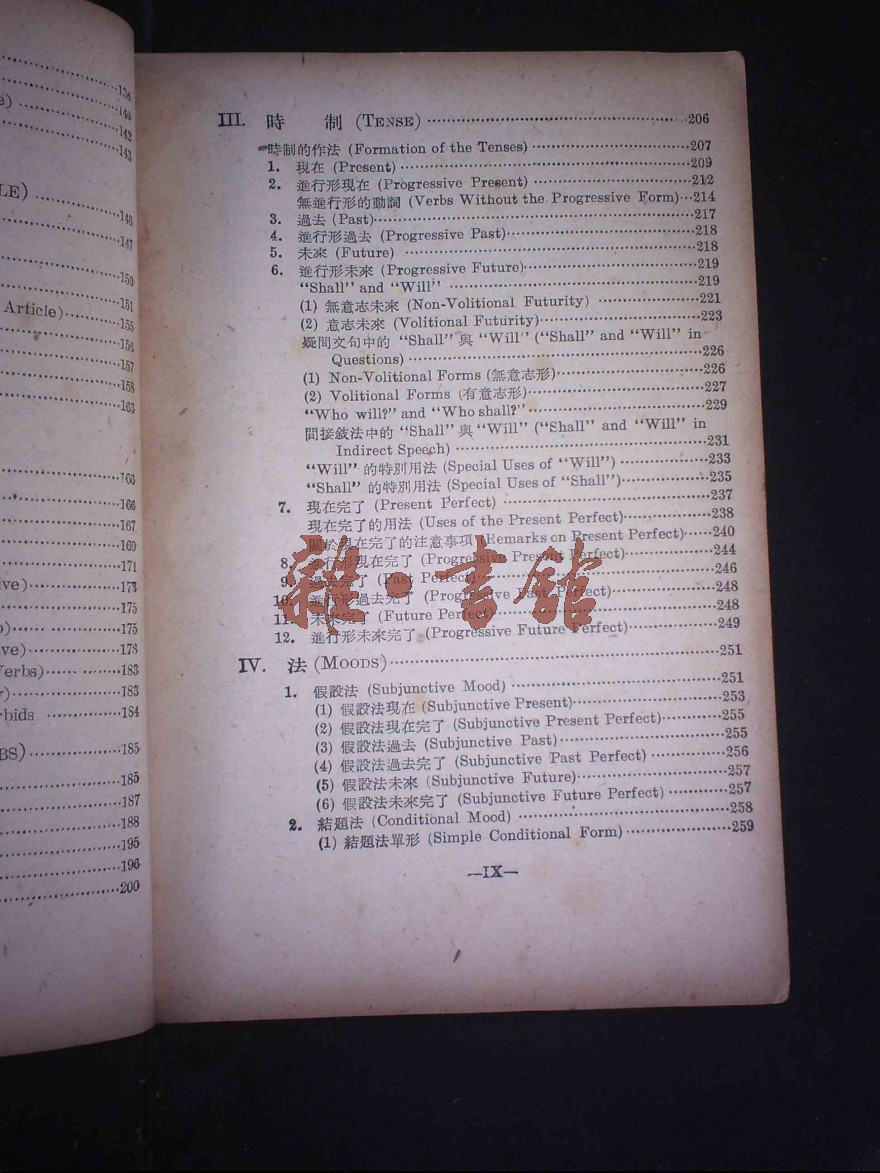 138
e) 140
142
143
LE)
146
147
150
151
Article) 155
156
157
158
163
165
166
167
169
171
ive) 173
175
) 175
ve) 178
Verbs) 183
) 183
rbids 184
BS) 185
185
187
188
195
196
200
III. 時 制 (TENSE) 206
時制的作法 (Formation of the Tenses) 207
1. 現在 (Present) 209
2. 進行形現在 (Progressive Present) 212
無進行形的動詞 (Verbs Without the Progressive Form) 214
3. 過去 (Past) 217
4. 進行形過去 (Progressive Past) 218
5. 未來 (Future) 218
6. 進行形未來 (Progressive Future) 219
“Shall” and “Will” 219
(1) 無意志未來 (Non-Volitional Futurity) 221
(2) 意志未來 (Volitional Futurity) 223
疑問文句中的 “Shall” 與 “Will” (“Shall” and “Will” in
Questions) 226
(1) Non-Volitional Forms (無意志形) 226
(2) Volitional Forms (有意志形) 227
“Who will?” and “Who shall?” 229
間接敘法中的 “Shall” 與 “Will” (“Shall” and “Will” in
Indirect Speech) 231
“Will” 的特別用法 (Special Uses of “Will”) 233
“Shall” 的特別用法 (Special Uses of “Shall”) 235
7. 現在完了 (Present Perfect) 237
現在完了的用法 (Uses of the Present Perfect) 238
關於現在完了的注意事項 (Remarks on Present Perfect) 240
8. 進行形現在完了 (Progressive Present Perfect) 244
9. 過去完了 (Past Perfect) 246
10. 進行形過去完了 (Progressive Past Perfect) 248
11. 未來完了 (Future Perfect) 248
12. 進行形未來完了 (Progressive Future Perfect) 249
雜·書館
IV. 法 (MOODS) 251
1. 假設法 (Subjunctive Mood) 251
(1) 假設法現在 (Subjunctive Present) 253
(2) 假設法現在完了 (Subjunctive Present Perfect) 255
(3) 假設法過去 (Subjunctive Past) 255
(4) 假設法過去完了 (Subjunctive Past Perfect) 256
(5) 假設法未來 (Subjunctive Future) 257
(6) 假設法未來完了 (Subjunctive Future Perfect) 257
2. 結題法 (Conditional Mood) 258
(1) 結題法單形 (Simple Conditional Form) 259
—IX—